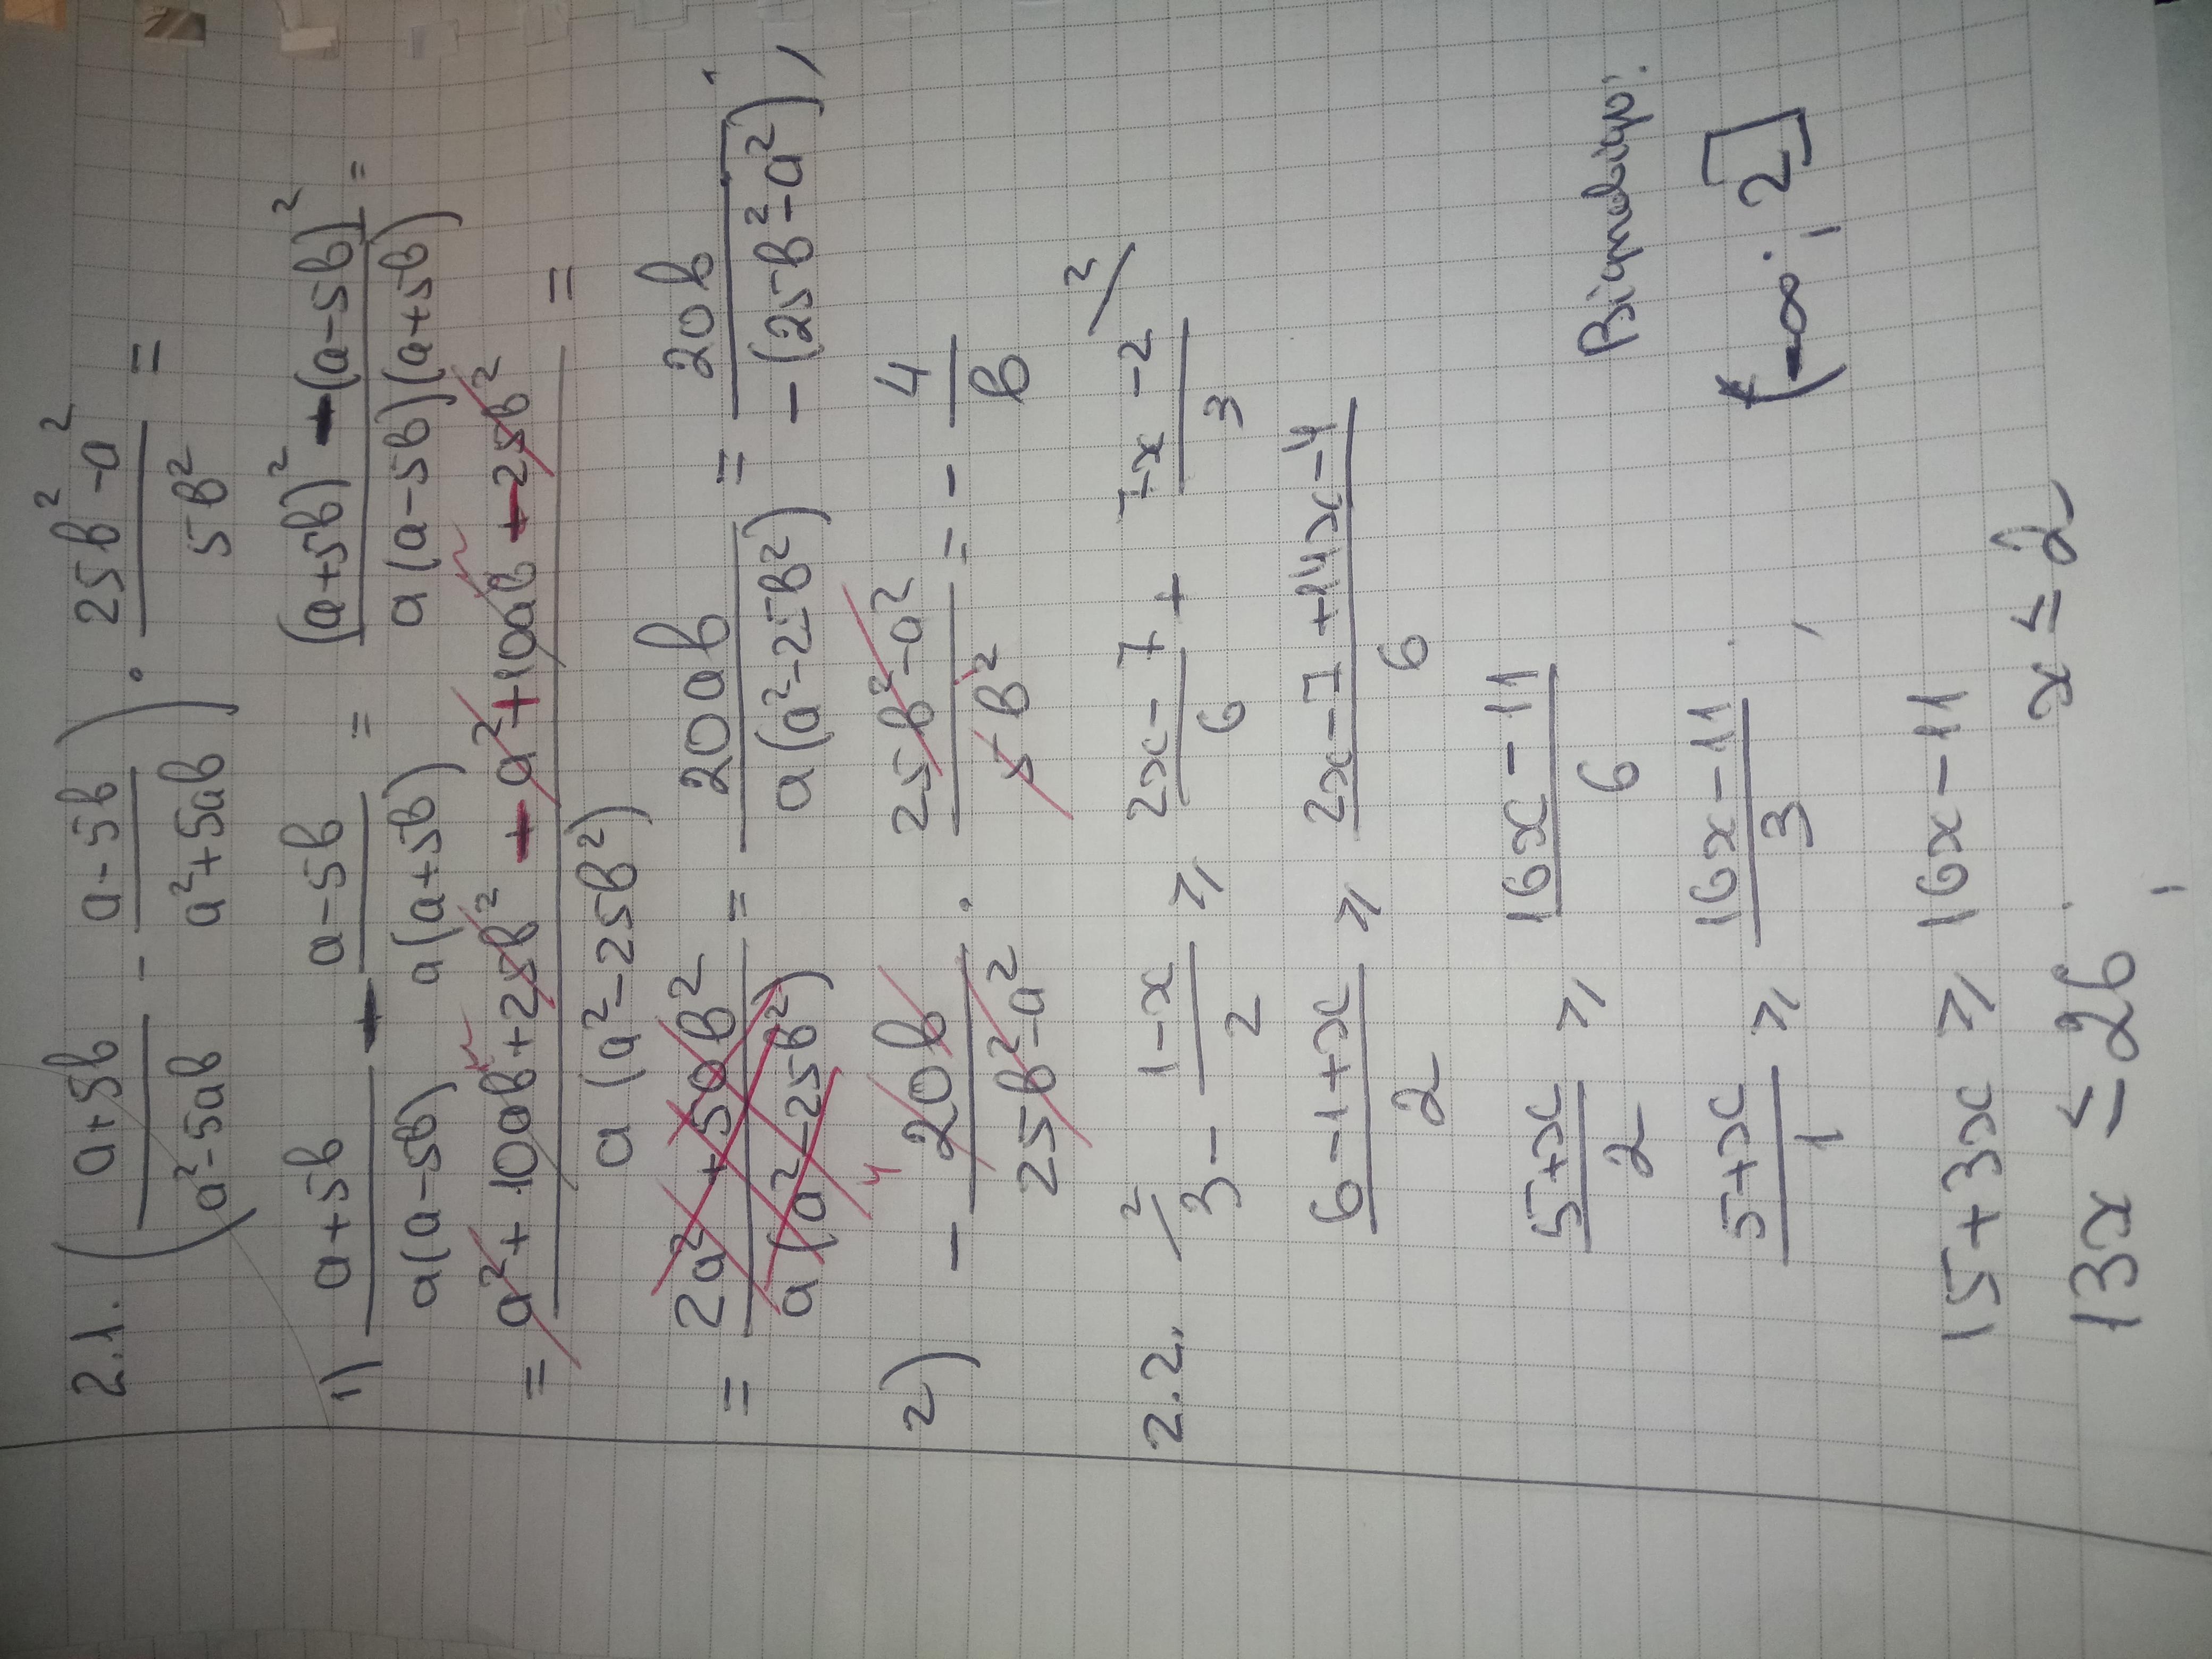 2.1. ((a+5b)/(a²-5ab) - (a-5b)/(a²+5ab)) · (25b²-a²)/(5b²) =
1) (a+5b)/(a(a-5b)) - (a-5b)/(a(a+5b)) = ((a+5b)² - (a-5b)²)/(a(a-5b)(a+5b)) =
= (a²+10ab+25b² - a²+10ab-25b²)/(a(a²-25b²)) =
= (2a²+50b²)/(a(a²-25b²)) = 20ab/(a(a²-25b²)) = 20b/(-(25b²-a²)),
2) - 20b/(25b²-a²) · (25b²-a²)/(5b²) = - 4/b
2.2. 3 - (1-x)/2 ⩾ (2x-7)/6 + (7x-2)/3
(6-1+x)/2 ⩾ (2x-7+14x-4)/6
(5+x)/2 ⩾ (16x-11)/6
(5+x)/1 ⩾ (16x-11)/3
15+3x ⩾ 16x-11
13x ≤ 26
x ≤ 2
Відповідь:
(-∞; 2]